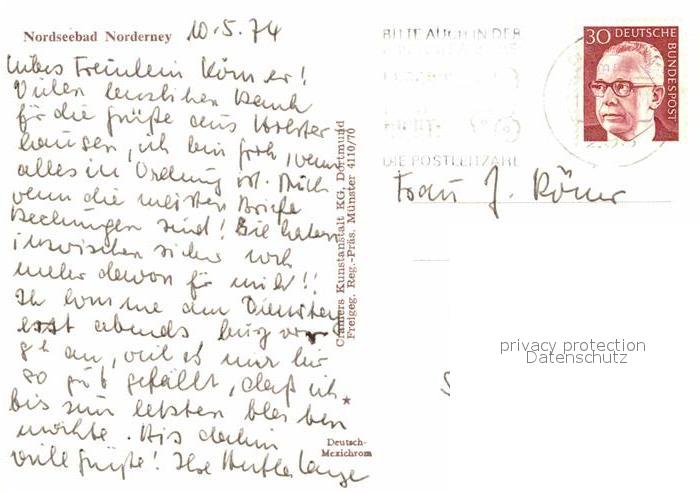 Nordseebad Norderney 10.5.74
Liebes Fräulein Römer!
Vielen herzlichen Dank
für die Grüße aus Holster
hausen, ich bin froh, wenn
alles in Ordnung ist. Auch
wenn die meisten Briefe
Rechnungen sind! Sie haben
inzwischen sicher noch
mehr davon für mich!!
Ich komme am Dienstag
erst abends
an, weil es mir hier
so gut gefällt, daß ich
bis zum letzten bleiben
möchte. Bis dahin
viele Grüße! Ihre
Cramers Kunstanstalt KG, Dortmund
Freigeg. Reg.-Präs. Münster 4110/70
Deutsch-
Mexichrom
BITTE AUCH IN DER
DIE POSTLEITZAHL
30 DEUTSCHE
BUNDESPOST
Frau J. Römer
privacy protection
Datenschutz